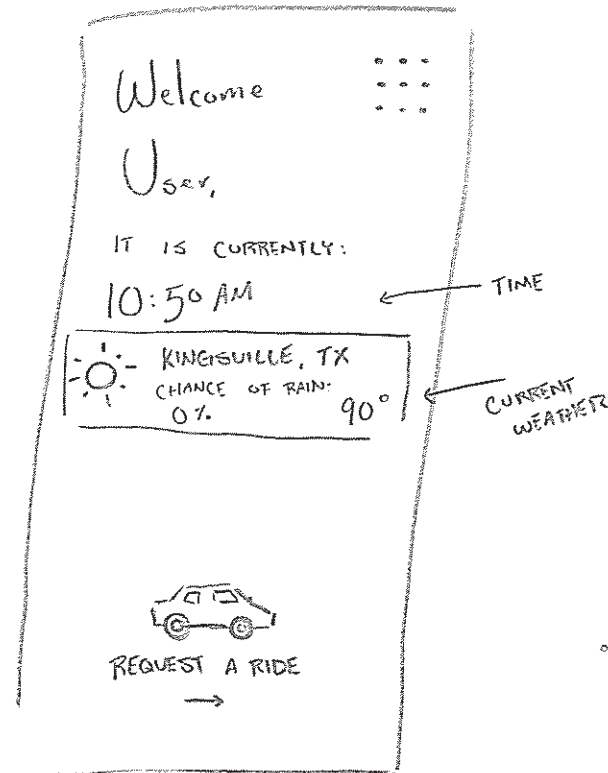 Welcome
User,
IT IS CURRENTLY:
10:50 AM
TIME
KINGSVILLE, TX
CHANCE OF RAIN:
0%
90°
CURRENT
WEATHER
REQUEST A RIDE